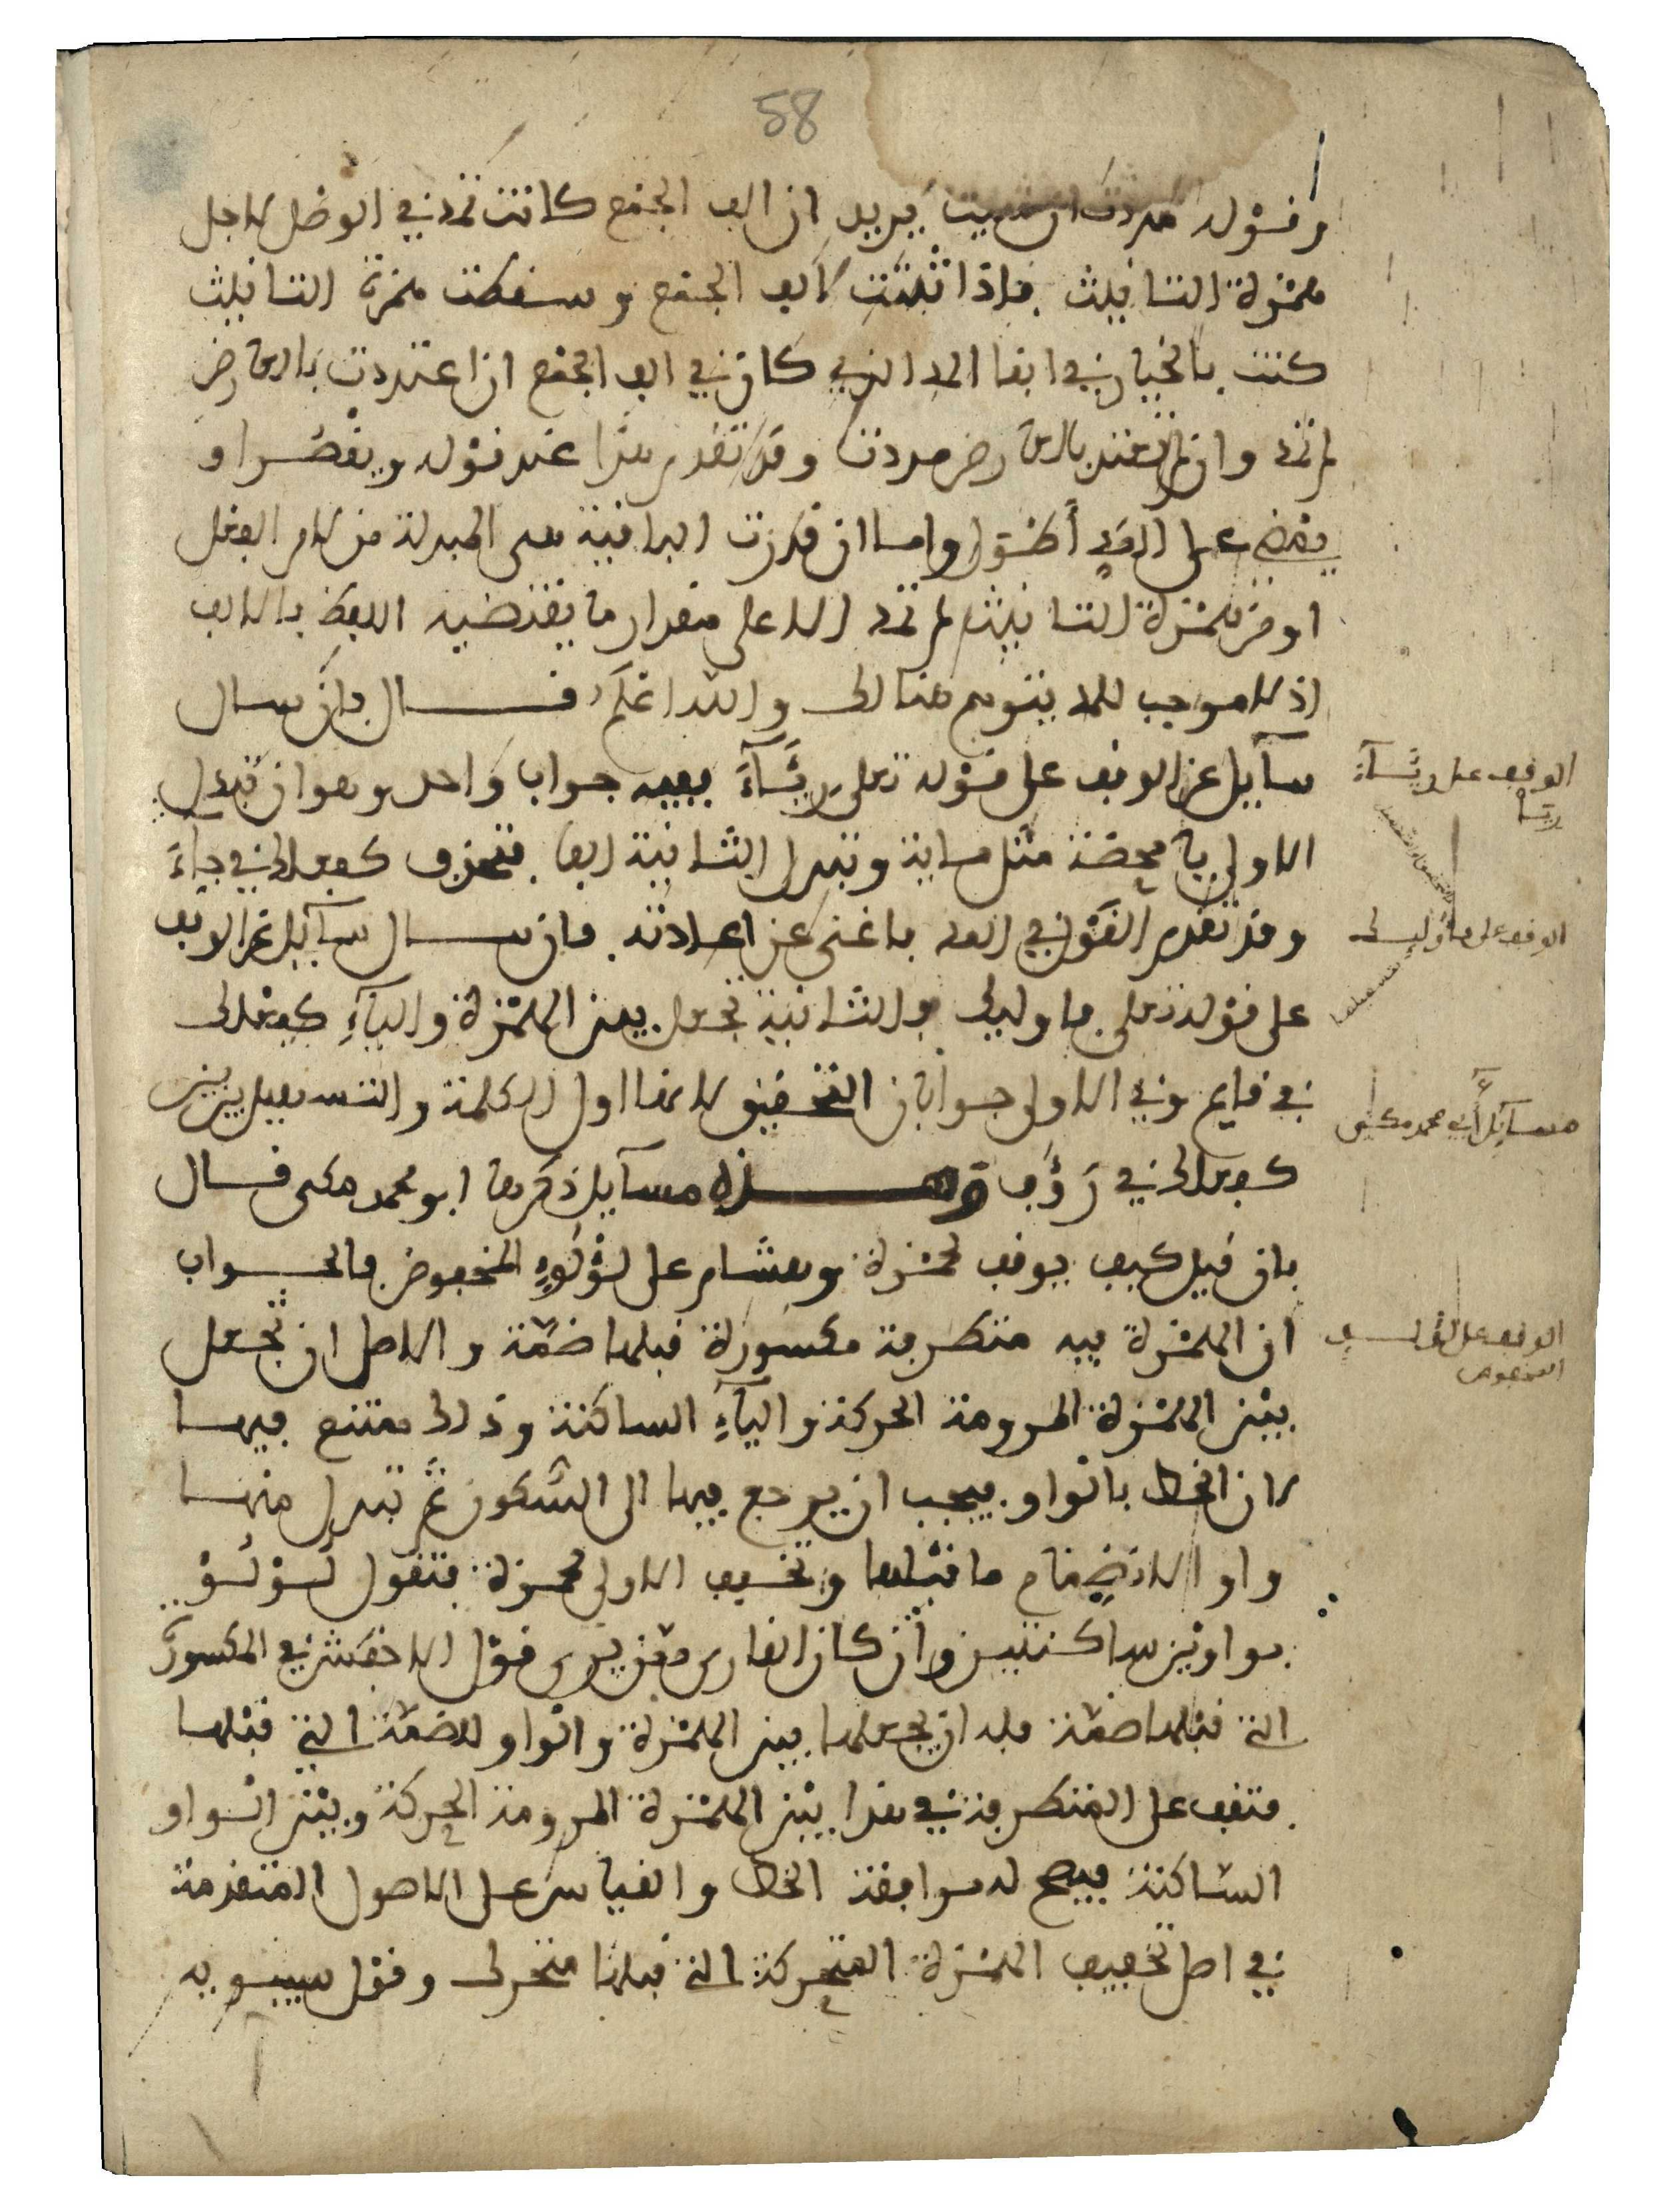 58
وقوله مددت ان شيت يريد ان الف الجمع كانت تمد في الوصل لاجل
همزة التانيث فاذا ثبتت الف الجمع وسقطت همزة التانيث
كنت بالخيار في ابقا المد الذي كان في الف الجمع ان اعتددت بالعارض
لم تمد وان لم تعتد بالعارض مددت وقد تقدم هذا عند قوله ويقصر او
يمضي على المد أطولا واما ان قدرت الباقية هي المبدلة من لام الفعل
او من همزة التانيث لم تمد الا على مقدار ما يقتضيه اللفظ بالالف
اذ لا موجب للمد يتوهم هنالك والله اعلم قال فان سال
سآيل عن الوقف على قوله تعلى رِيَآءَ ففيه جواب واحد وهو ان تبدل
الاولى يا محضة مثل ماية وتبدل الثانية الفا فتحذف كفعلك في جآءَ
وقد تقدم القول في المد ما غنى عن اعادته فان سال سآيل عن الوقف
على قوله تعلى فاوليك فالثانية تجعل بين الهمزة واليآءِ كفعلك
في قايم وفي الاولى جوابان التحقيق لانها اول الكلمة والتسهيل بين بين
كفعلك في رَؤُف وهذه مسآيل ذكرها ابو محمد مكى قال
فان قيل كيف يوقف لحمزة وهشام على لؤلؤٍ المخفوض فالجواب
ان الهمزة فيه متطرفة مكسورة قبلها ضمّة والاصل ان تجعل
بين الهمزة المرومة الحركة واليآءِ الساكنة وذلك ممتنع فيها
لان الخط بالواو فيجب ان يرجع فيها الى السكون ثم تبدل منها
واو الانضمام ما قبلها وتخفف الاولى لحمزة فتقول لوْلوْ
بواوين ساكنتين وان كان القارى ممن يرى قول الاخفش في المكسورة
التي قبلها ضمّة فله ان يجعلها بين الهمزة والواو للضمّة التي قبلها
فتقف على المتطرفة في هذا بين الهمزة المرومة الحركة وبين الواو
الساكنة فيصح له موافقة الخط والقياس على الاصول المتقدمة
في اصل تخفيف الهمزة المتحركة التي قبلها متحرك وقول سيبويه
الوقف على ريآءَ
الوقف على فاوليك
مسآيل أبي محمد مكى
الوقف على لؤلؤ
المخفوض